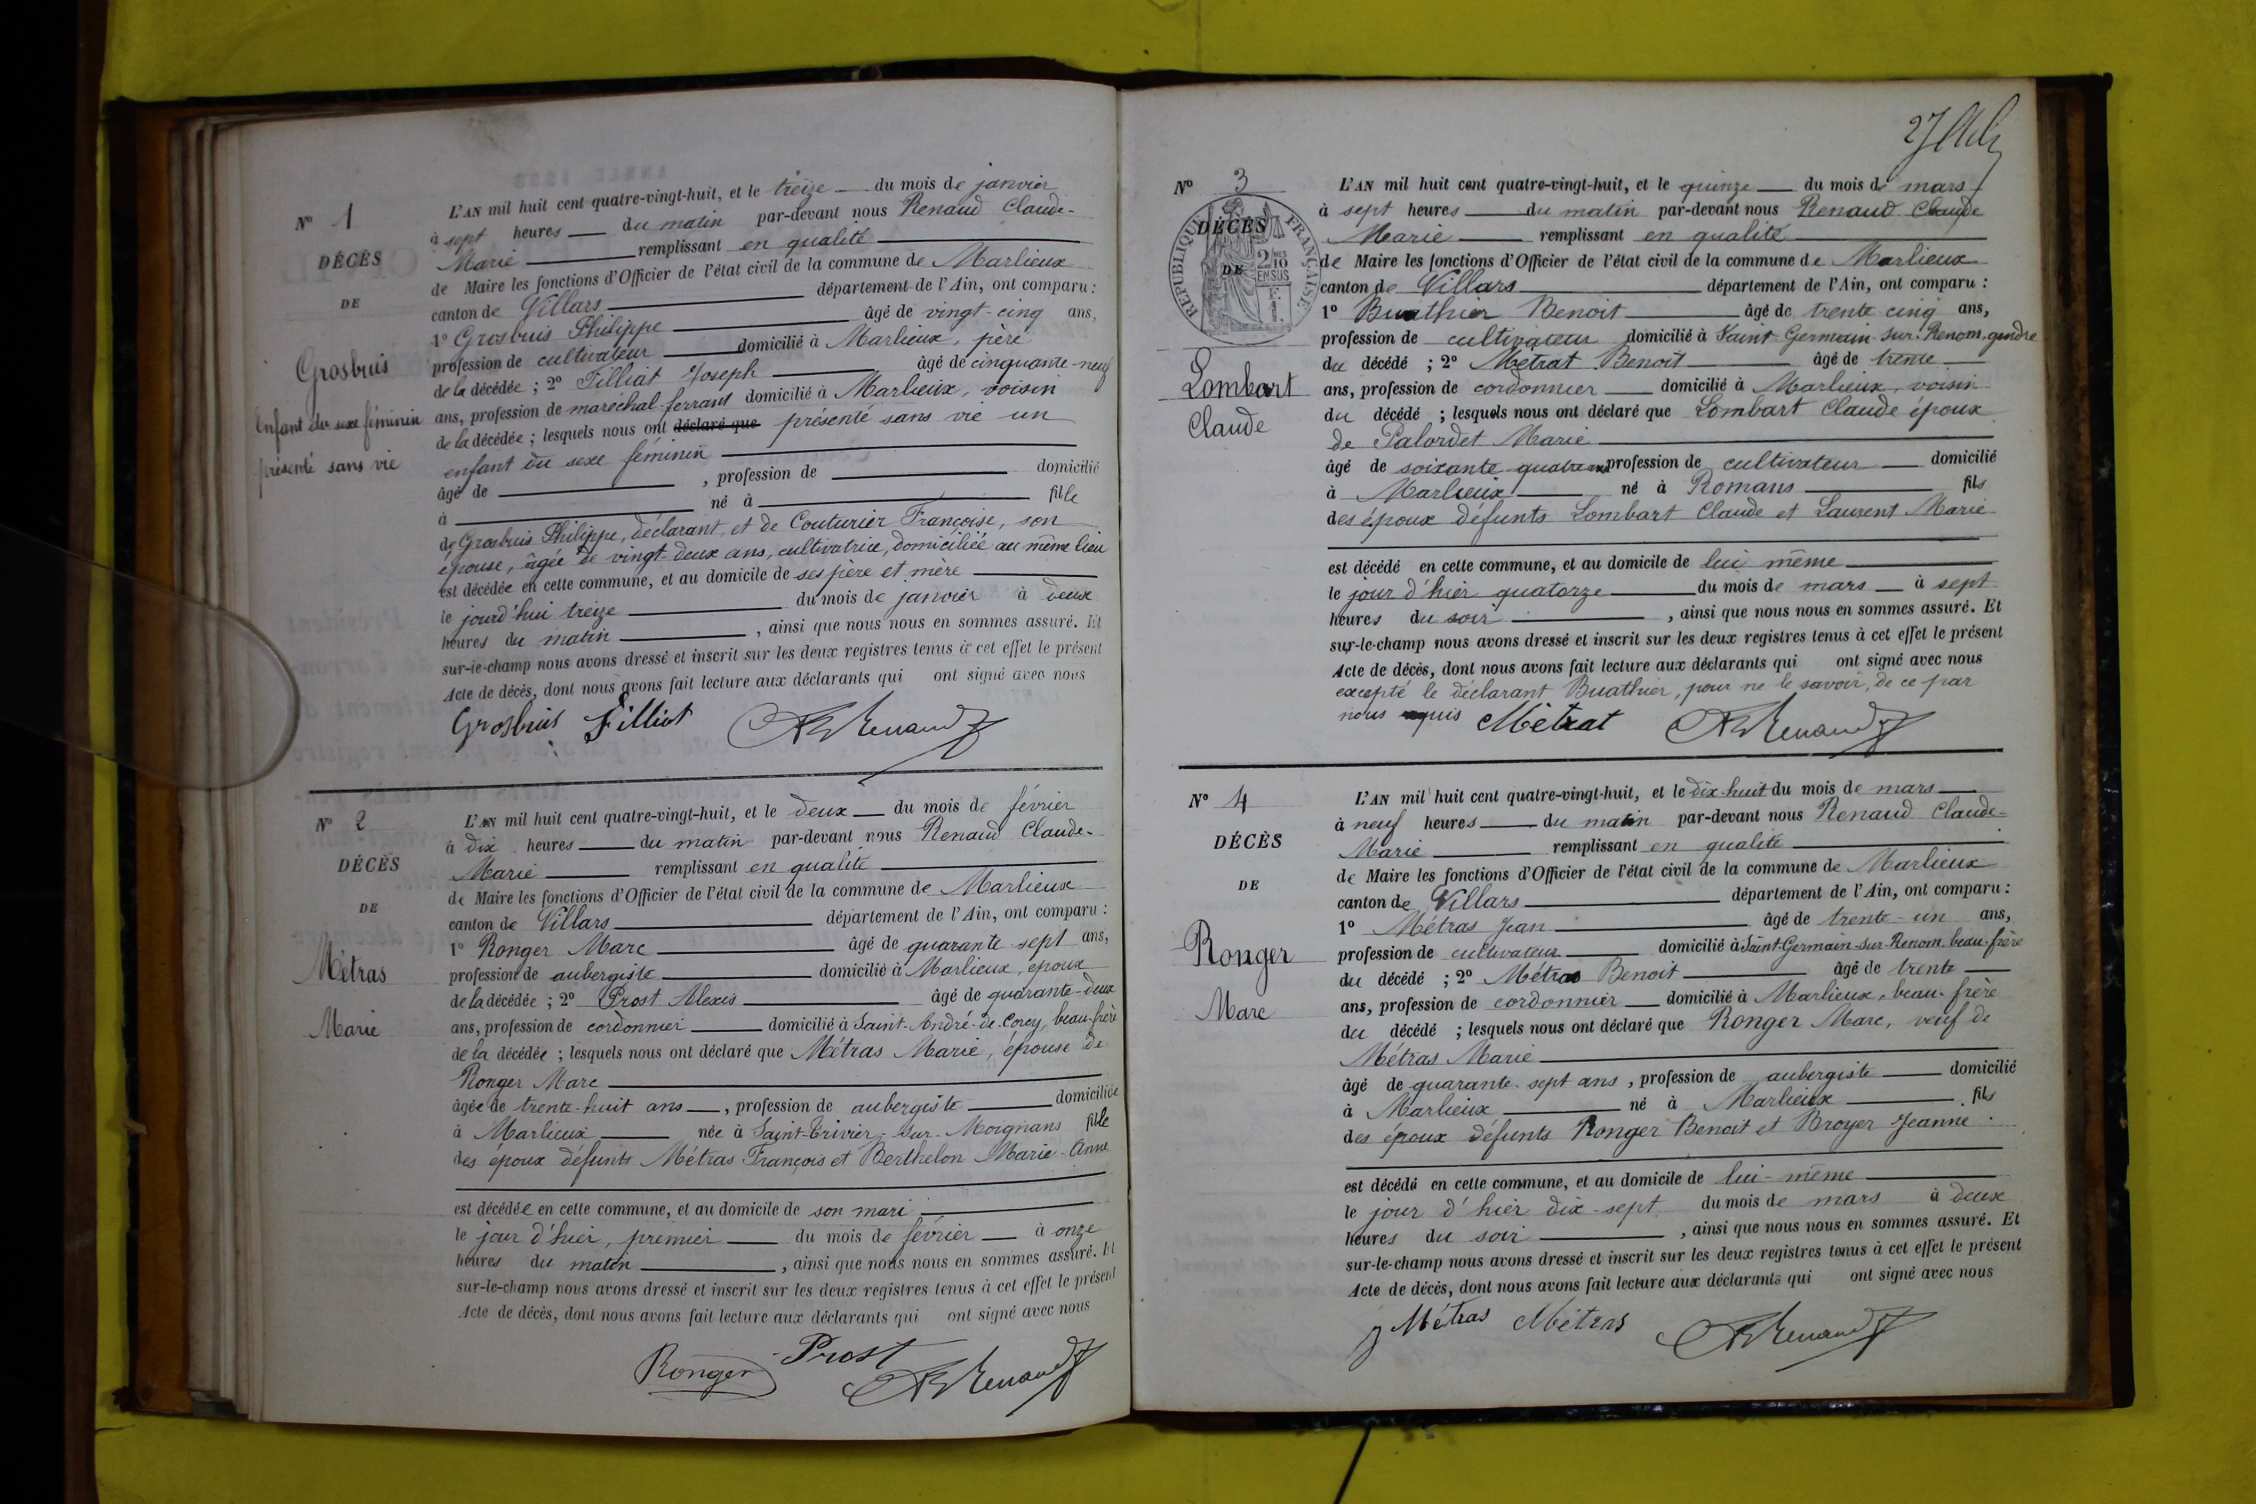 N° 1
DÉCÈS
DE
Grosbuis
Enfant du sexe féminin
présenté sans vie
L'AN mil huit cent quatre-vingt-huit, et le treize du mois de janvier
à sept heures du matin par-devant nous Renaud Claude-
Marie remplissant en qualité
de Maire les fonctions d'Officier de l'état civil de la commune de Marlieux
canton de Villars département de l'Ain, ont comparu :
1° Grosbuis Philippe âgé de vingt-cinq ans,
profession de cultivateur domicilié à Marlieux, père
de la décédée ; 2° Filliat Joseph âgé de cinquante-neuf
ans, profession de maréchal-ferrant domicilié à Marlieux, voisin
de la décédée ; lesquels nous ont déclaré que présenté sans vie un
enfant du sexe féminin
âgé de , profession de domicilié
à né à fille
de Grosbuis Philippe, déclarant, et de Couturier Françoise, son
épouse, âgée de vingt-deux ans, cultivatrice, domiciliée au même lieu
est décédée en cette commune, et au domicile de ses père et mère
le jourd'hui treize du mois de janvier à deux
heures du matin , ainsi que nous nous en sommes assuré. Et
sur-le-champ nous avons dressé et inscrit sur les deux registres tenus à cet effet le présent
Acte de décès, dont nous avons fait lecture aux déclarants qui ont signé avec nous
Grosbuis Filliat Renaud
N° 2
DÉCÈS
DE
Métras
Marie
L'AN mil huit cent quatre-vingt-huit, et le deux du mois de février
à dix heures du matin par-devant nous Renaud Claude-
Marie remplissant en qualité
de Maire les fonctions d'Officier de l'état civil de la commune de Marlieux
canton de Villars département de l'Ain, ont comparu :
1° Ronger Marc âgé de quarante sept ans,
profession de aubergiste domicilié à Marlieux, époux
de la décédée ; 2° Prost Alexis âgé de quarante-deux
ans, profession de cordonnier domicilié à Saint-André-de-Corcy, beau-frère
de la décédée ; lesquels nous ont déclaré que Métras Marie, épouse de
Ronger Marc
âgée de trente-huit ans , profession de aubergiste domiciliée
à Marlieux née à Saint-Trivier-sur-Moignans fille
des époux défunts Métras François et Berthelon Marie-Anne
est décédée en cette commune, et au domicile de son mari
le jour d'hier, premier du mois de février à onze
heures du matin , ainsi que nous nous en sommes assuré. Et
sur-le-champ nous avons dressé et inscrit sur les deux registres tenus à cet effet le présent
Acte de décès, dont nous avons fait lecture aux déclarants qui ont signé avec nous
Ronger Prost Renaud
27
N° 3
DÉCÈS
DE
RÉPUBLIQUE FRANÇAISE
2/10 EN SUS
Lombart
Claude
L'AN mil huit cent quatre-vingt-huit, et le quinze du mois de mars
à sept heures du matin par-devant nous Renaud Claude
Marie remplissant en qualité
de Maire les fonctions d'Officier de l'état civil de la commune de Marlieux
canton de Villars département de l'Ain, ont comparu :
1° Buathier Benoit âgé de trente cinq ans,
profession de cultivateur domicilié à Saint-Germain-sur-Renom, gendre
du décédé ; 2° Métrat Benoit âgé de trente
ans, profession de cordonnier domicilié à Marlieux, voisin
du décédé ; lesquels nous ont déclaré que Lombart Claude époux
de Palordet Marie
âgé de soixante quatre ans profession de cultivateur domicilié
à Marlieux né à Romans fils
des époux défunts Lombart Claude et Laurent Marie
est décédé en cette commune, et au domicile de lui même
le jour d'hier quatorze du mois de mars à sept
heures du soir , ainsi que nous nous en sommes assuré. Et
sur-le-champ nous avons dressé et inscrit sur les deux registres tenus à cet effet le présent
Acte de décès, dont nous avons fait lecture aux déclarants qui ont signé avec nous
excepté le déclarant Buathier, pour ne le savoir, de ce par
nous requis Métrat Renaud
N° 4
DÉCÈS
DE
Ronger
Marc
L'AN mil huit cent quatre-vingt-huit, et le dix-huit du mois de mars
à neuf heures du matin par-devant nous Renaud Claude-
Marie remplissant en qualité
de Maire les fonctions d'Officier de l'état civil de la commune de Marlieux
canton de Villars département de l'Ain, ont comparu :
1° Métras Jean âgé de trente-un ans,
profession de cultivateur domicilié à Saint-Germain-sur-Renom beau-frère
du décédé ; 2° Métras Benoit âgé de trente
ans, profession de cordonnier domicilié à Marlieux, beau-frère
du décédé ; lesquels nous ont déclaré que Ronger Marc, veuf de
Métras Marie
âgé de quarante-sept ans , profession de aubergiste domicilié
à Marlieux né à Marlieux fils
des époux défunts Ronger Benoit et Broyer Jeanne
est décédé en cette commune, et au domicile de lui-même
le jour d'hier dix-sept du mois de mars à deux
heures du soir , ainsi que nous nous en sommes assuré. Et
sur-le-champ nous avons dressé et inscrit sur les deux registres tenus à cet effet le présent
Acte de décès, dont nous avons fait lecture aux déclarants qui ont signé avec nous
J Métras Métras Renaud